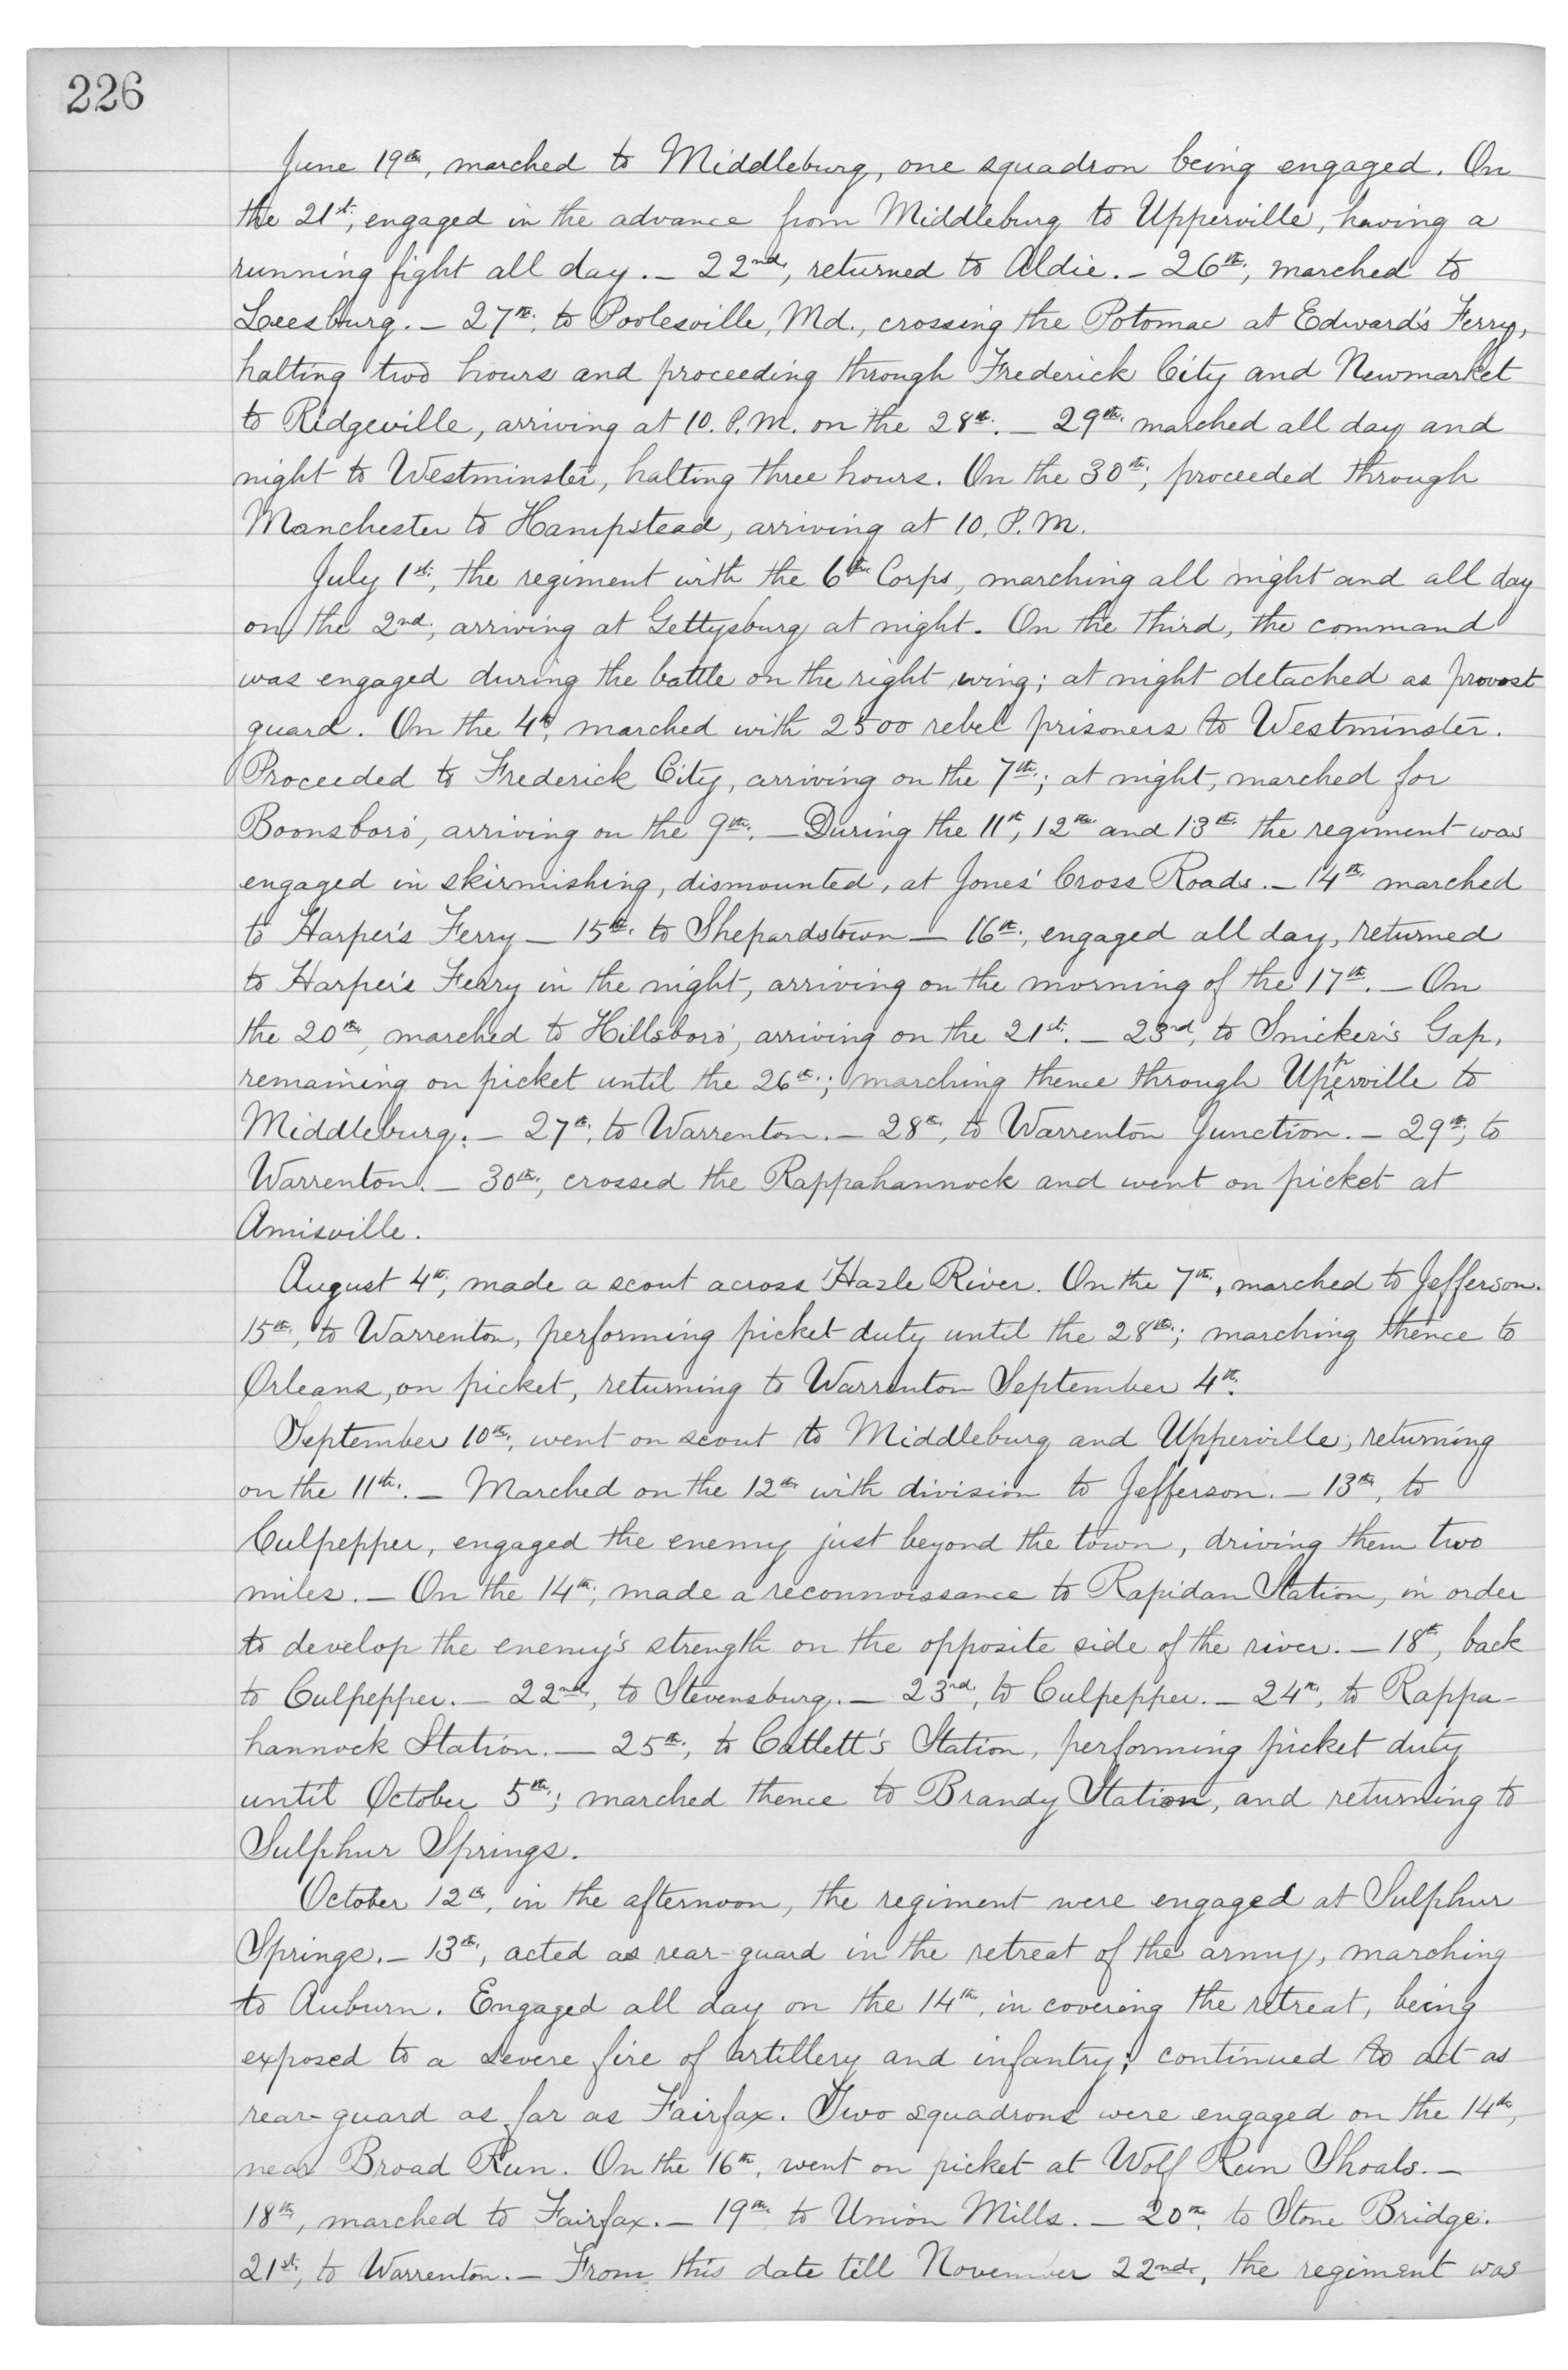 226
June 19th, marched to Middleburg, one squadron being engaged. On
the 21st, engaged in the advance from Middleburg to Upperville, having a
running fight all day. — 22nd, returned to Aldie. — 26th, marched to
Leesburg. — 27th, to Poolesville, Md., crossing the Potomac at Edward's Ferry,
halting two hours and proceeding through Frederick City and Newmarket
to Ridgeville, arriving at 10. P.M. on the 28th. — 29th marched all day and
night to Westminster, halting three hours. On the 30th, proceeded through
Manchester to Hampstead, arriving at 10, P.M.
July 1st, the regiment with the 6th Corps, marching all night and all day
on the 2nd, arriving at Gettysburg at night. On the third, the command
was engaged during the battle on the right wing; at night detached as provost
guard. On the 4th, marched with 2500 rebel prisoners to Westminster.
Proceeded to Frederick City, arriving on the 7th; at night, marched for
Boonsboro', arriving on the 9th. — During the 11th, 12th and 13th the regiment was
engaged in skirmishing, dismounted, at Jones' Cross Roads. — 14th marched
to Harper's Ferry — 15th to Shepardstown — 16th, engaged all day, returned
to Harper's Ferry in the night, arriving on the morning of the 17th. — On
the 20th, marched to Hillsboro', arriving on the 21st. — 23rd, to Snicker's Gap,
remaining on picket until the 26th; marching thence through Upperville to
Middleburg. — 27th, to Warrenton. — 28th, to Warrenton Junction. — 29th, to
Warrenton. — 30th, crossed the Rappahannock and went on picket at
Amisville.
August 4th, made a scout across Hazle River. On the 7th, marched to Jefferson.
15th, to Warrenton, performing picket duty until the 28th; marching thence to
Orleans, on picket, returning to Warrenton September 4th.
September 10th, went on scout to Middleburg and Upperville, returning
on the 11th. — Marched on the 12th with division to Jefferson. — 13th, to
Culpepper, engaged the enemy just beyond the town, driving them two
miles. — On the 14th, made a reconnoissance to Rapidan Station, in order
to develop the enemy's strength on the opposite side of the river. — 18th, back
to Culpepper. — 22nd, to Stevensburg. — 23rd, to Culpepper. — 24th, to Rappa-
hannock Station. — 25th, to Catlett's Station, performing picket duty
until October 5th; marched thence to Brandy Station, and returning to
Sulphur Springs.
October 12th, in the afternoon, the regiment were engaged at Sulphur
Springs. — 13th, acted as rear-guard in the retreat of the army, marching
to Auburn. Engaged all day on the 14th, in covering the retreat, being
exposed to a severe fire of artillery and infantry; continued to act as
rear-guard as far as Fairfax. Two squadrons were engaged on the 14th,
near Broad Run. On the 16th, went on picket at Wolf Run Shoals. —
18th, marched to Fairfax. — 19th, to Union Mills. — 20th, to Stone Bridge.
21st, to Warrenton. — From this date till November 22nd, the regiment was